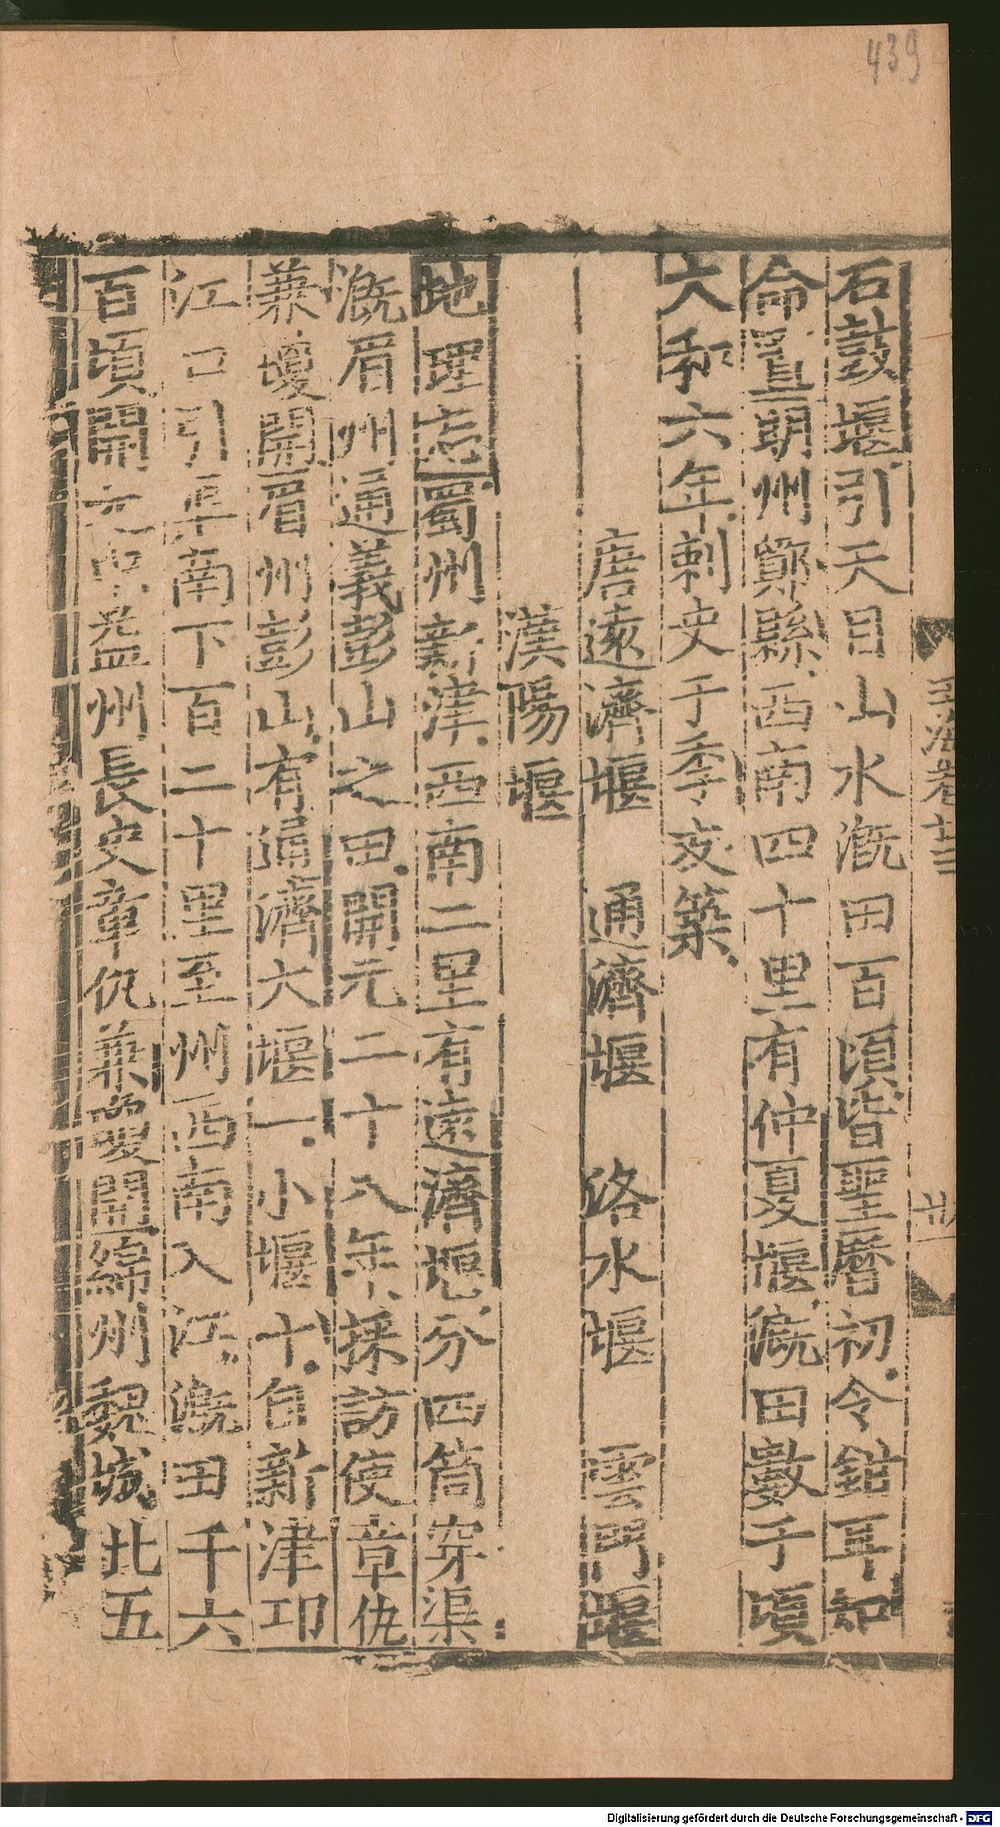 439
石鼓堰引天目山水溉田百頃皆聖曆初令鉗耳知
命置朗州鄮縣西南四十里有仲夏堰溉田數千頃
大和六年刺史于季友築
唐遠濟堰 通濟堰 洛水堰 雲門堰
漢陽堰
地理志蜀州新津西南二里有遠濟堰分四筒穿渠
溉眉州通義彭山之田開元二十八年採訪使章仇
兼瓊開眉州彭山有通濟大堰一小堰十自新津卭
江口引渠南下百二十里至州西南入江溉田千六
百頃開元中益州長史章仇兼瓊開綿州魏城北五
玉海卷廿三
Digitalisierung gefördert durch die Deutsche Forschungsgemeinschaft - DFG